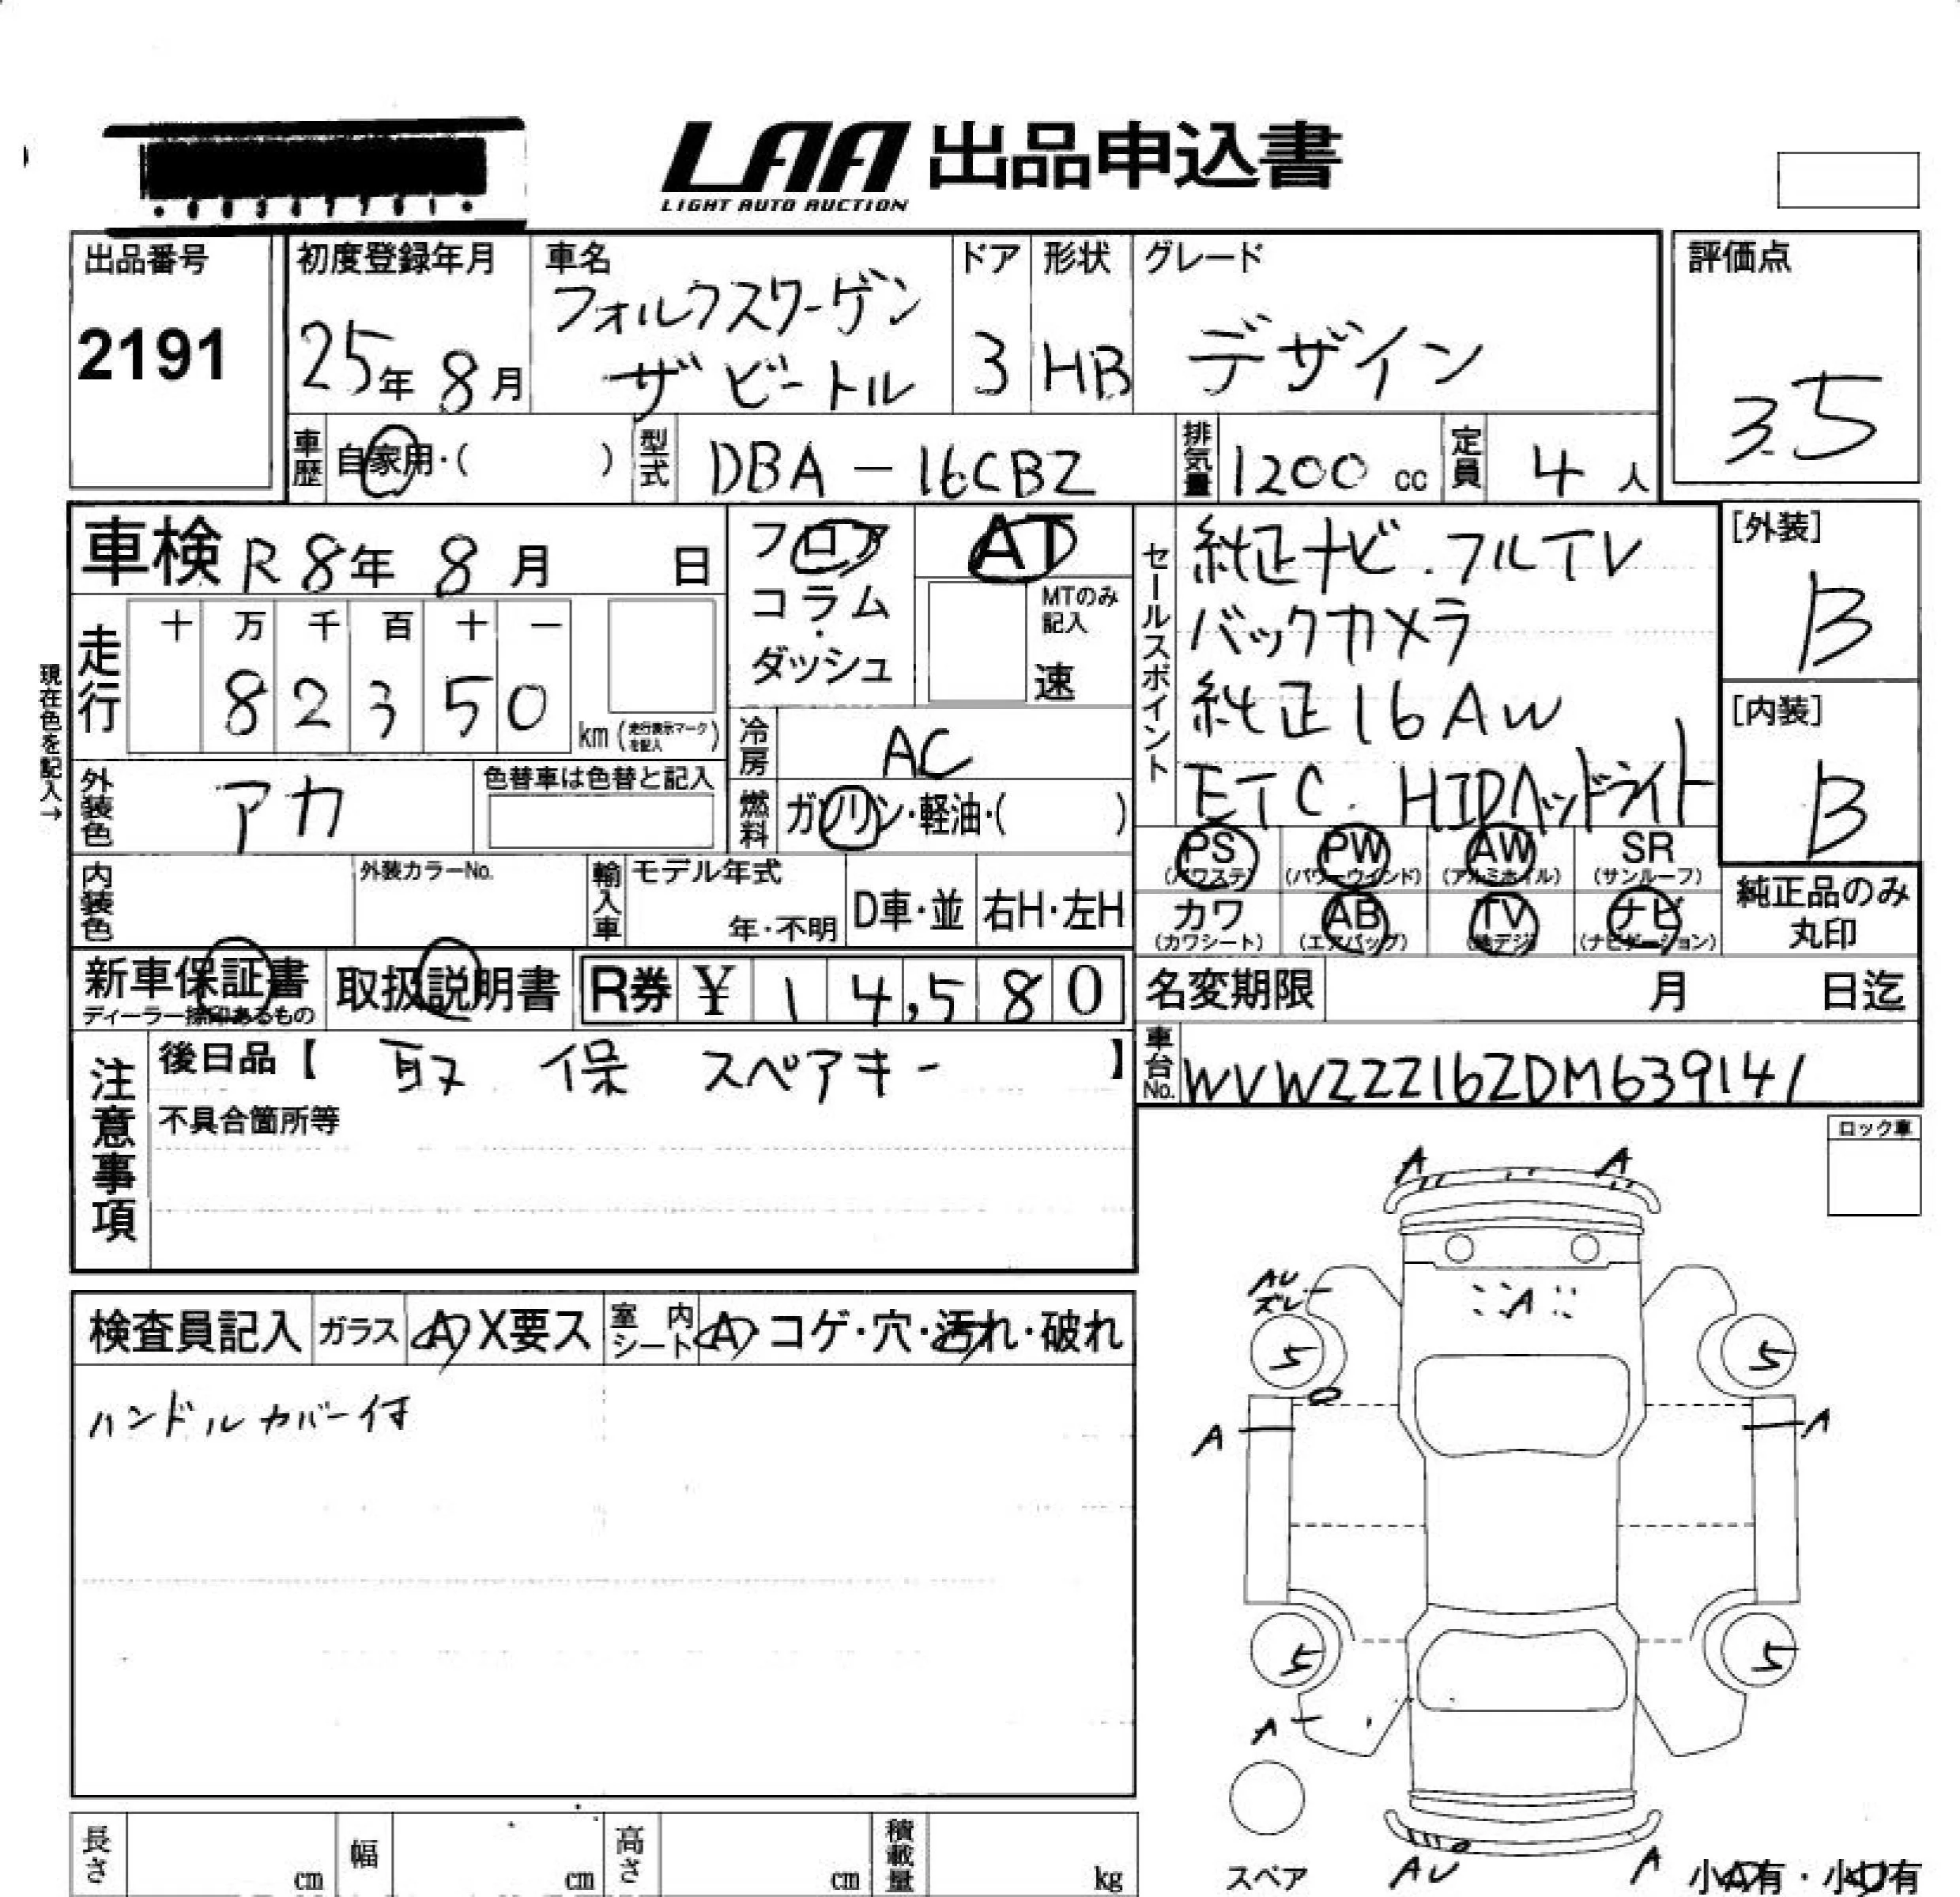 LAA 出品申込書
LIGHT AUTO AUCTION
出品番号
2191
初度登録年月
25年 8月
車名
フォルクスワーゲン
ザ ビートル
ドア
3
形状
HB
グレード
デザイン
評価点
3.5
車歴 自家用・( )
型式 DBA-16CBZ
排気量 1200 cc
定員 4 人
車検 R8年 8月 日
フロア
コラム
・
ダッシュ
AT
MTのみ
記入
速
セールスポイント
純正ナビ.フルTV
バックカメラ
純正16AW
ETC. HIDヘッドライト
[外装]
B
[内装]
B
現在色を記入→
走行
十 万 千 百 十 一
8 2 3 5 0
km(走行表示マークを記入)
冷房 AC
外装色 アカ
色替車は色替と記入
燃料 ガソリン・軽油・( )
PS
(パワステ)
PW
(パワーウインド)
AW
(アルミホイル)
SR
(サンルーフ)
カワ
(カワシート)
AB
(エアバッグ)
TV
(地デジ)
ナビ
(ナビゲーション)
純正品のみ
丸印
内装色
外装カラーNo.
輸入車
モデル年式
年・不明
D車・並
右H・左H
新車保証書
ディーラー捺印あるもの
取扱説明書
R券 ¥ 1 4,5 8 0
名変期限 月 日迄
注意事項
後日品【 取 保 スペアキー 】
不具合箇所等
車台No. WVWZZZ16ZDM639141
ロック車
検査員記入
ガラス A X要ス
室内シート A・コゲ・穴・汚れ・破れ
ハンドルカバー付
A A
AU
ズレ
A
5 5
A A
5 5
A
スペア
AU A
小A有・小U有
長さ cm
幅 cm
高さ cm
積載量 kg